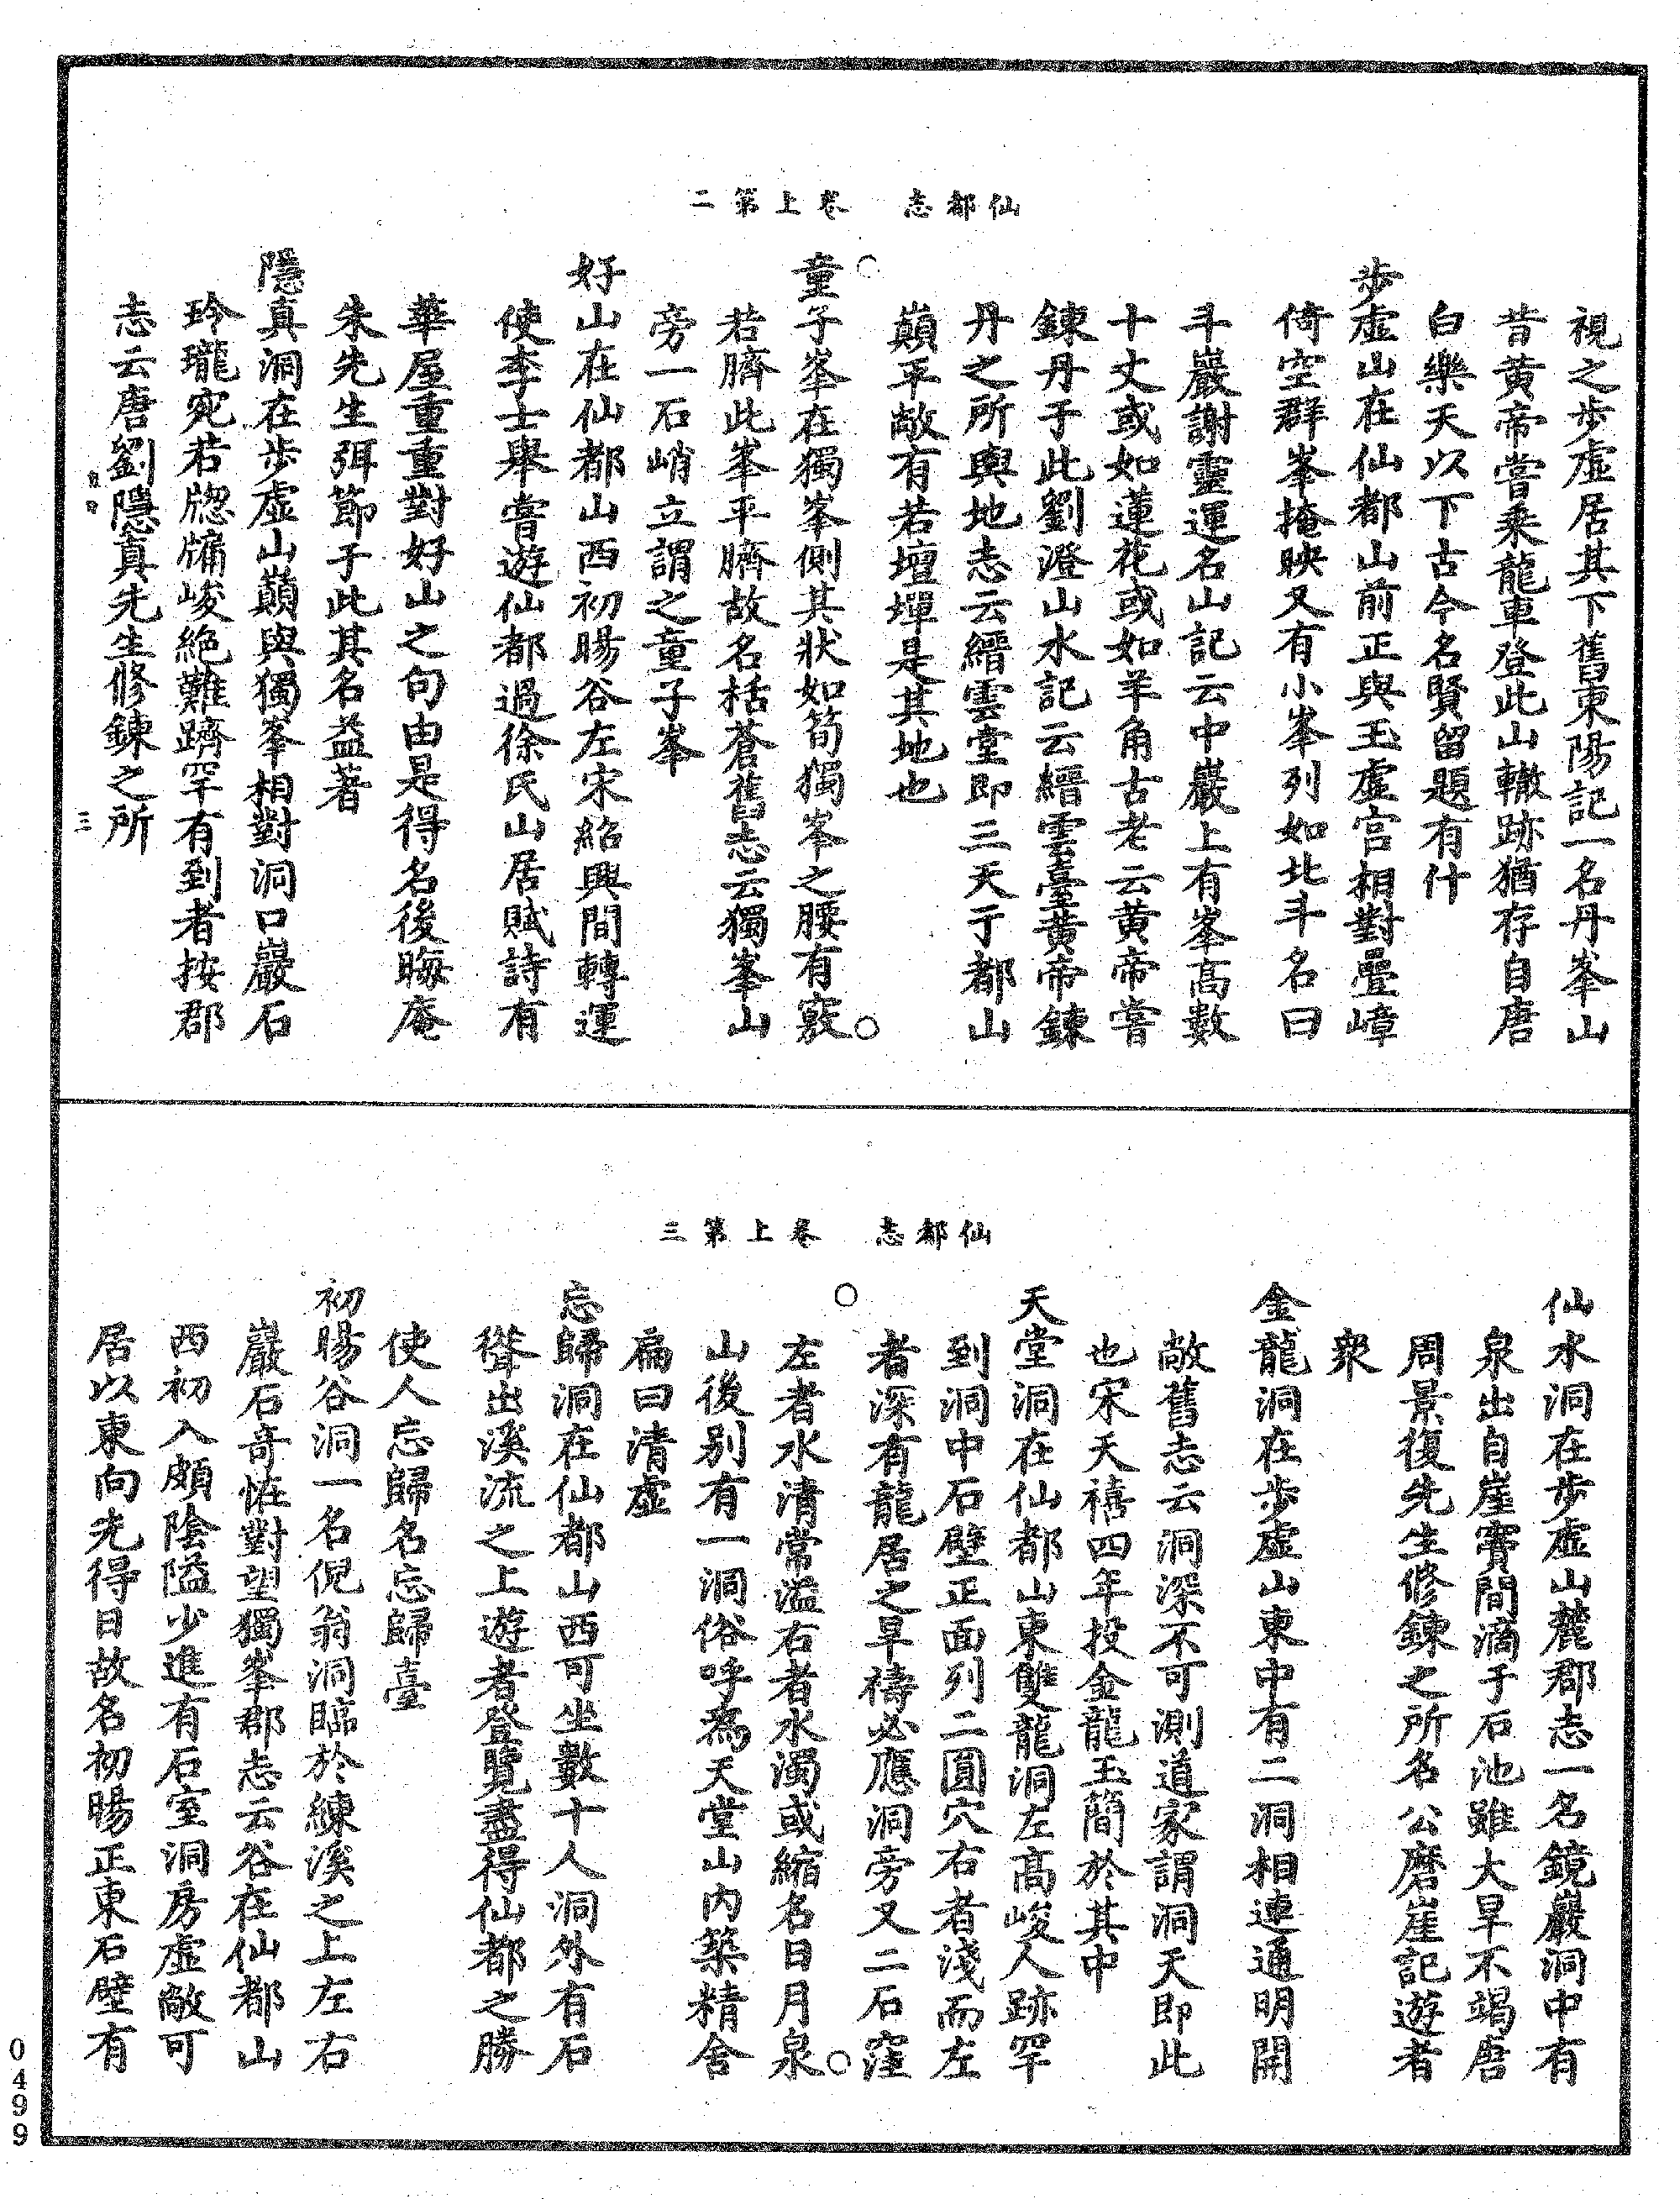 仙都志 卷上第二
視之步虛居其下舊東陽記一名丹峯山
昔黃帝嘗乘龍車登此山轍跡猶存自唐
白樂天以下古今名賢留題有什
步虛山在仙都山前正與玉虛宮相對疊嶂
倚空群峯掩映又有小峯列如北斗名曰
斗巖謝靈運名山記云中巖上有峯高數
十丈或如蓮花或如羊角古老云黃帝嘗
鍊丹于此劉澄山水記云縉雲臺黃帝鍊
丹之所輿地志云縉雲堂即三天子都山
巔平敞有若壇墠是其地也
童子峯在獨峯側其狀如筍獨峯之腰有竅
若臍此峯平臍故名栝蒼舊志云獨峯山
旁一石峭立謂之童子峯
好山在仙都山西初暘谷左宋紹興間轉運
使李士舉嘗遊仙都過徐氏山居賦詩有
華屋重重對好山之句由是得名後晦庵
朱先生弭節于此其名益著
隱真洞在步虛山巔與獨峯相對洞口巖石
玲瓏宛若牕牖峻絶難躋罕有到者按郡
志云唐劉隱真先生修鍊之所
三
仙都志 卷上第三
仙水洞在步虛山麓郡志一名鏡巖洞中有
泉出自崖竇間滴于石池雖大旱不竭唐
周景復先生修鍊之所名公磨崖記遊者
衆
金龍洞在步虛山東中有二洞相連通明開
敞舊志云洞深不可測道家謂洞天即此
也宋天禧四年投金龍玉簡於其中
天堂洞在仙都山東雙龍洞左高峻人跡罕
到洞中石壁正面列二圓穴右者淺而左
者深有龍居之旱禱必應洞旁又二石窪
左者水清常溢右者水濁或縮名日月泉
山後別有一洞俗呼爲天堂山內築精舍
扁曰清虛
忘歸洞在仙都山西可坐數十人洞外有石
磴出溪流之上遊者登覽盡得仙都之勝
使人忘歸名忘歸臺
初暘谷洞一名倪翁洞睨於練溪之上左右
巖石奇怪對望獨峯郡志云谷在仙都山
西初入頗陰隘少進有石室洞房虛敞可
居以東向先得日故名初暘正東石壁有
0499